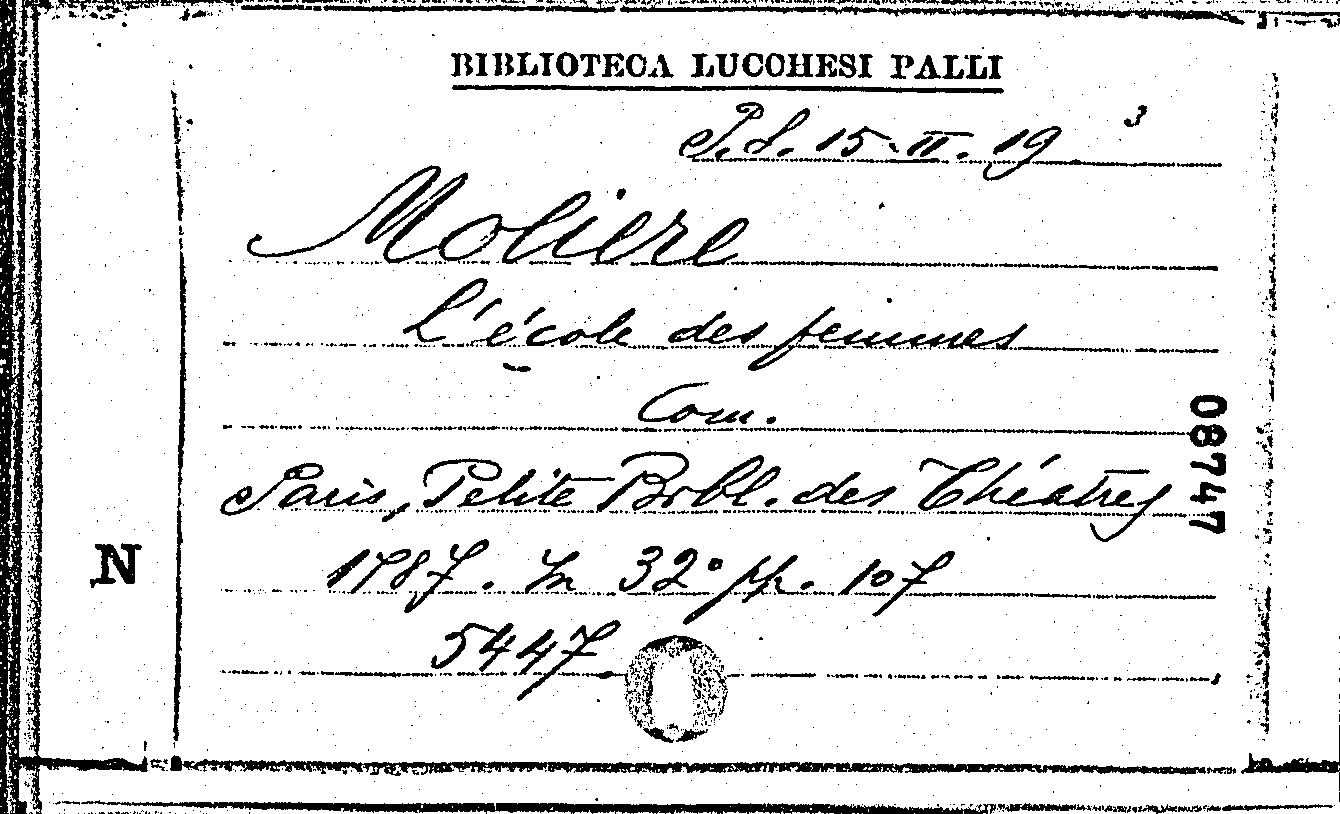 BIBLIOTECA LUCCHESI PALLI
P.S. 15-II. 19 3
Moliere
L'école des femmes
Com.
Paris, Petite Bibl. des Théatres
1787. In 32° pp. 107
5447
N
08747